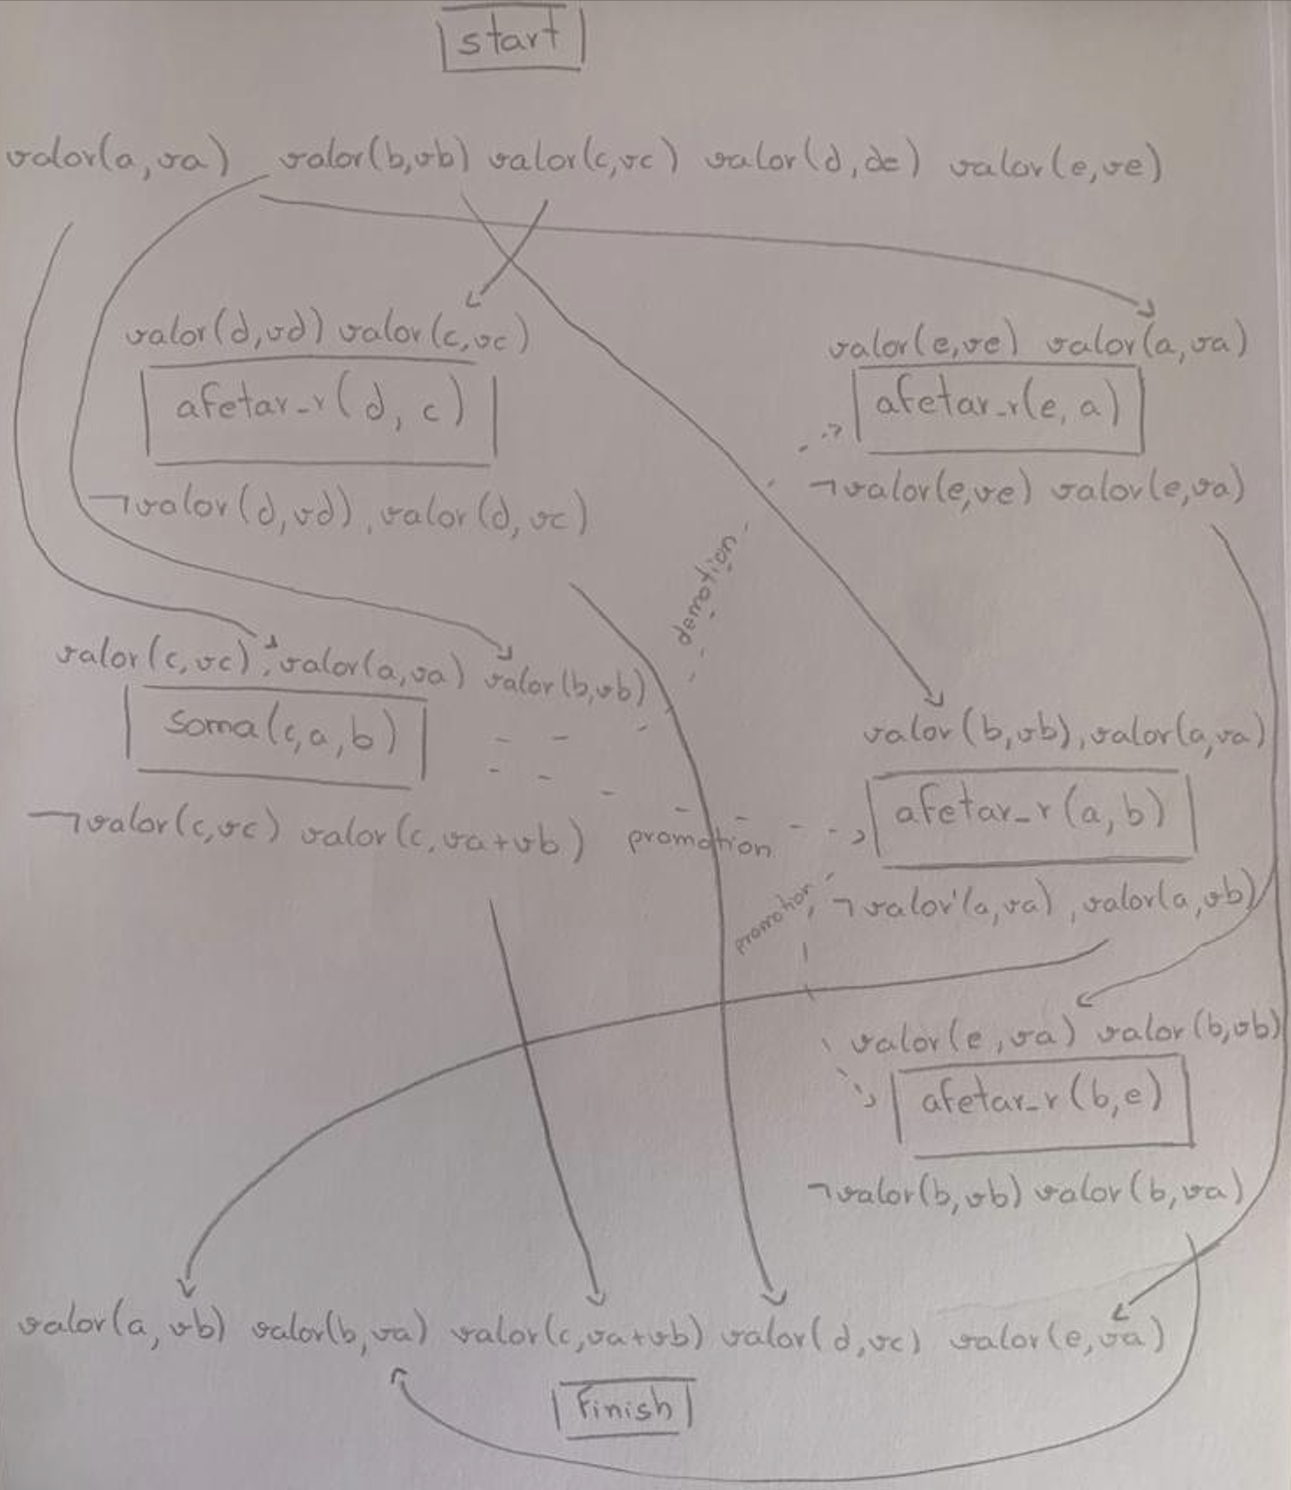 start
valor(a,va) valor(b,vb) valor(c,vc) valor(d,de) valor(e,ve)
valor(d,vd) valor(c,vc)
afetar_r(d, c)
¬valor(d,vd), valor(d, vc)
valor(e,ve) valor(a,va)
afetar_r(e, a)
¬valor(e,ve) valor(e,va)
demotion
valor(c,vc), valor(a,va) valor(b,vb)
soma(c,a,b)
¬valor(c,vc) valor(c,va+vb)
promotion
valor(b,vb), valor(a,va)
afetar_r(a,b)
¬valor(a,va), valor(a,vb)
promotion
valor(e,va) valor(b,vb)
afetar_r(b,e)
¬valor(b,vb) valor(b,va)
valor(a,vb) valor(b,va) valor(c,va+vb) valor(d,vc) valor(e,va)
Finish